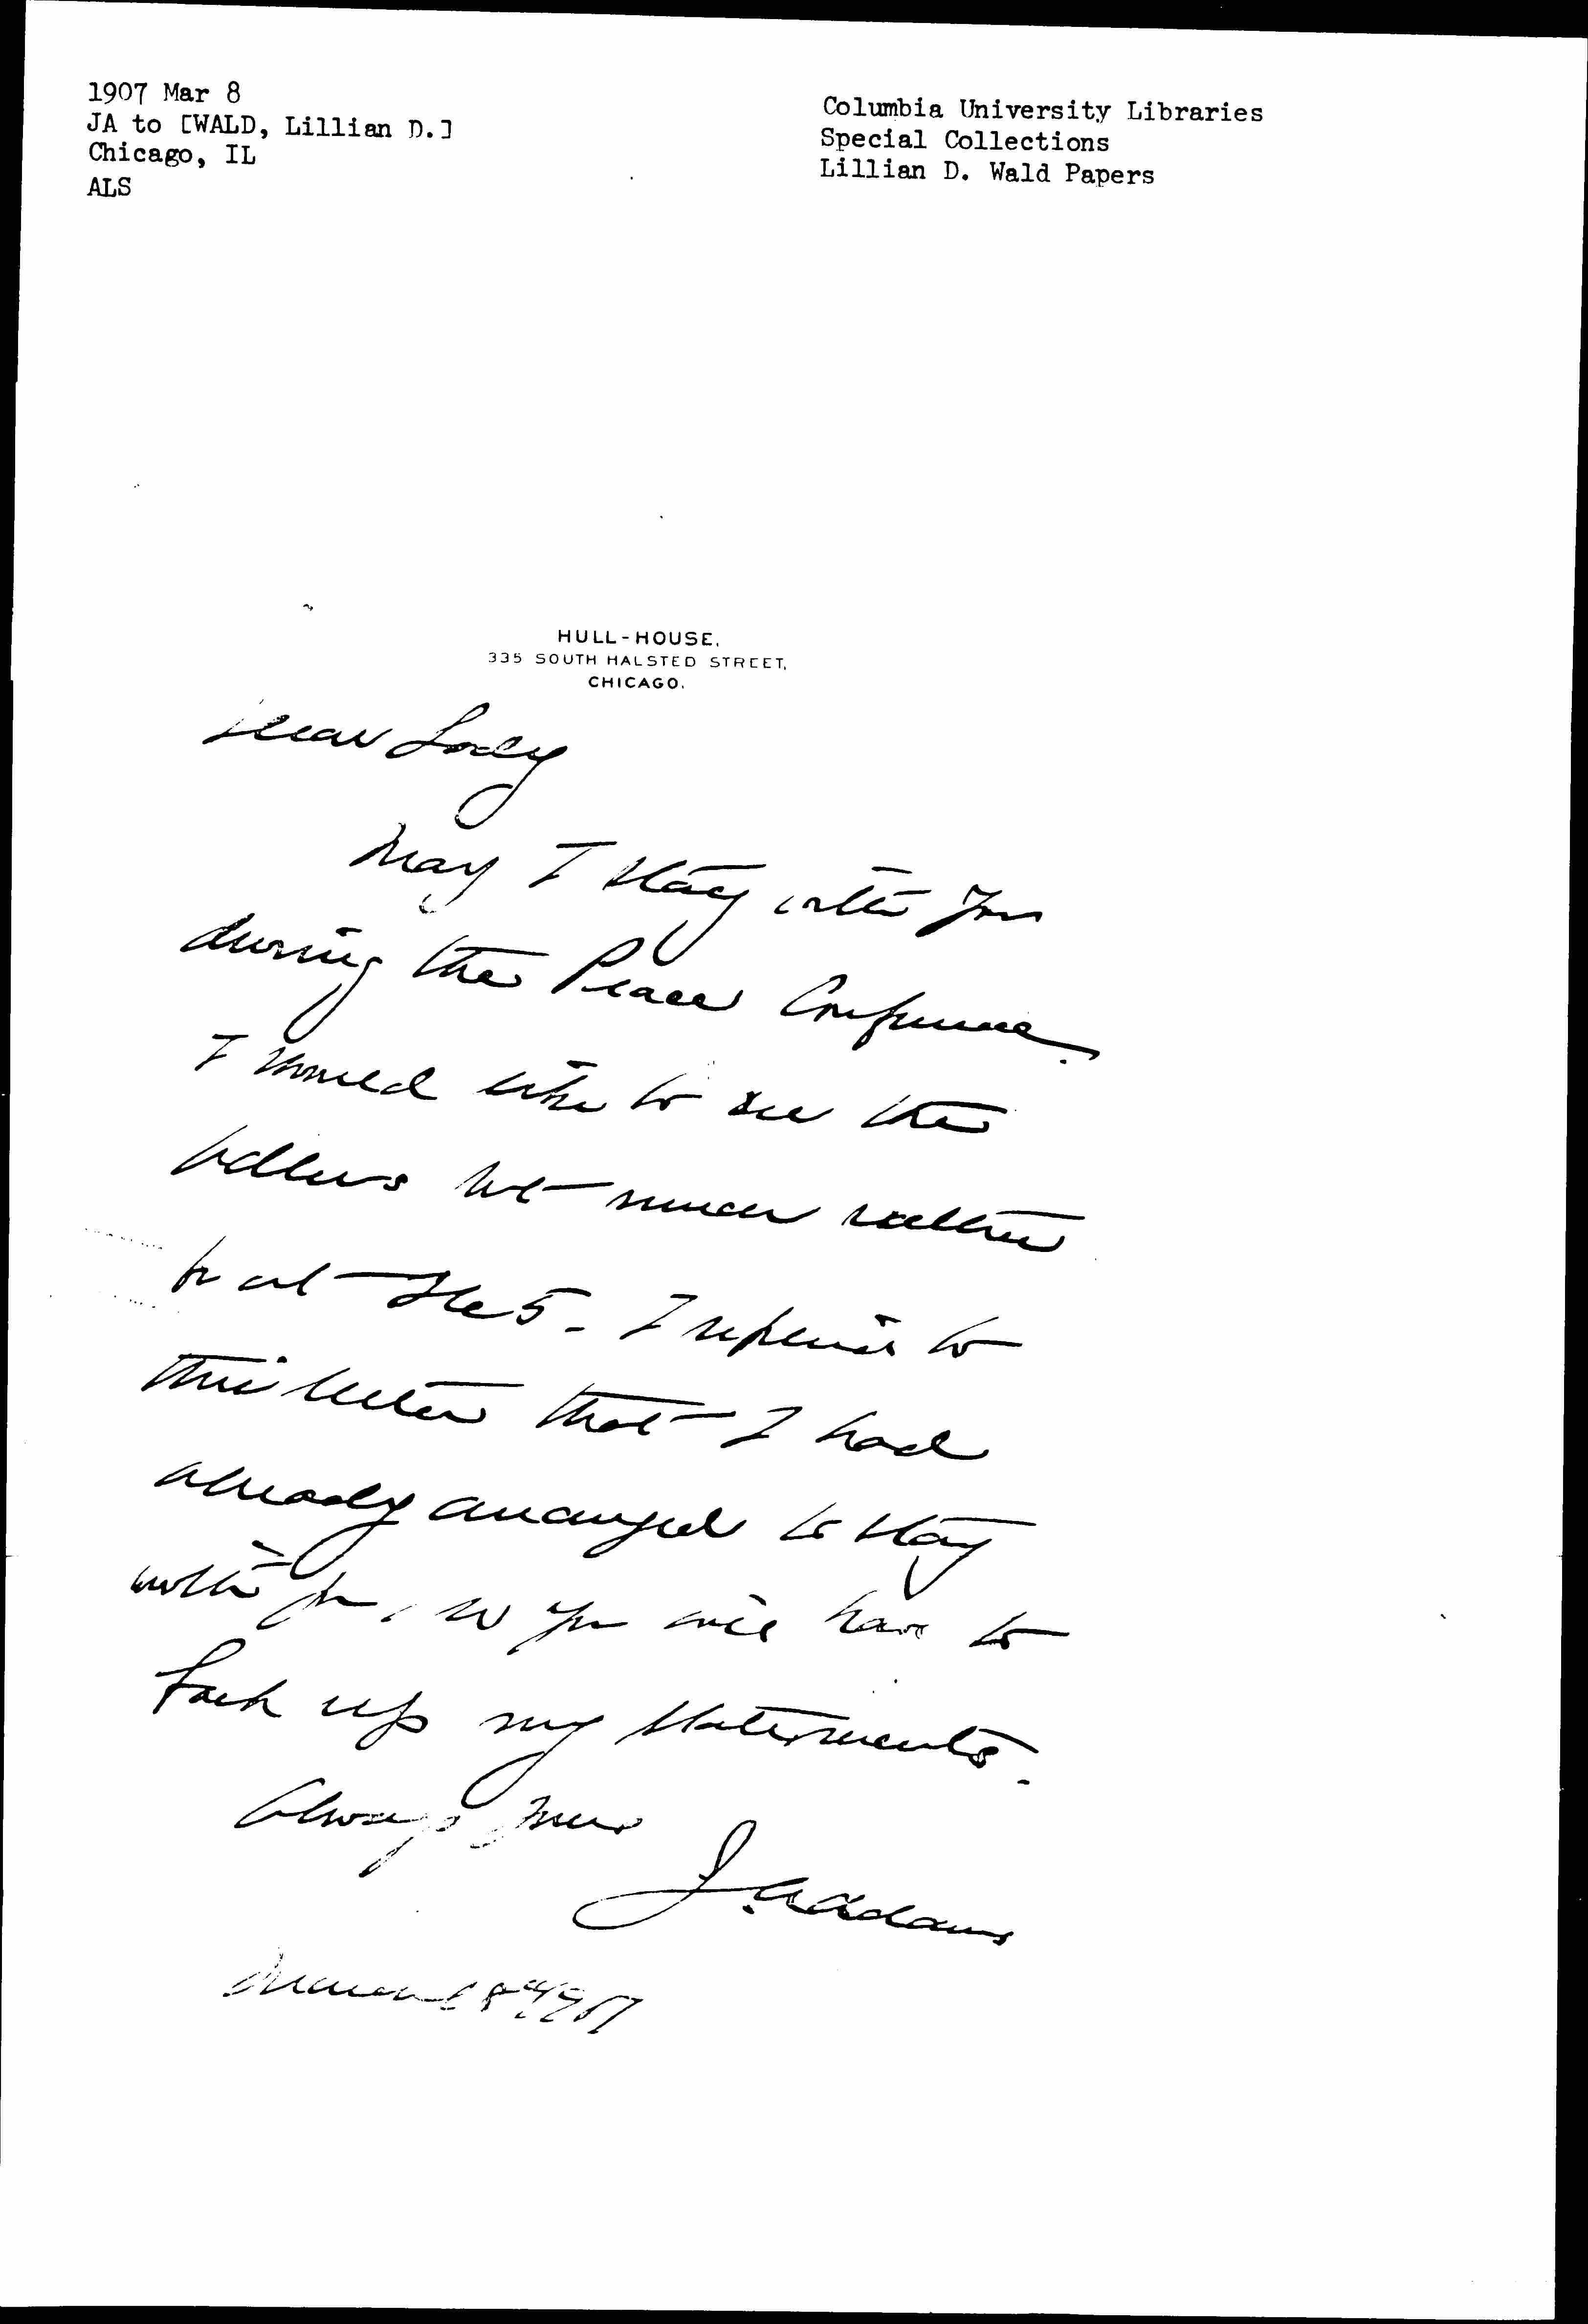 1907 Mar 8
JA to [WALD, Lillian D.]
Chicago, IL
ALS
Columbia University Libraries
Special Collections
Lillian D. Wald Papers
HULL-HOUSE,
335 SOUTH HALSTED STREET,
CHICAGO.
Dear Lady
May I stay with you
during the Peace Conference.
I would like to see the
but much rather
be at 265. I replied to
their letter that I had
already arranged to stay
with you, so you will have to
back up my statements.
Always yours
J. Addams
March 8" 1907